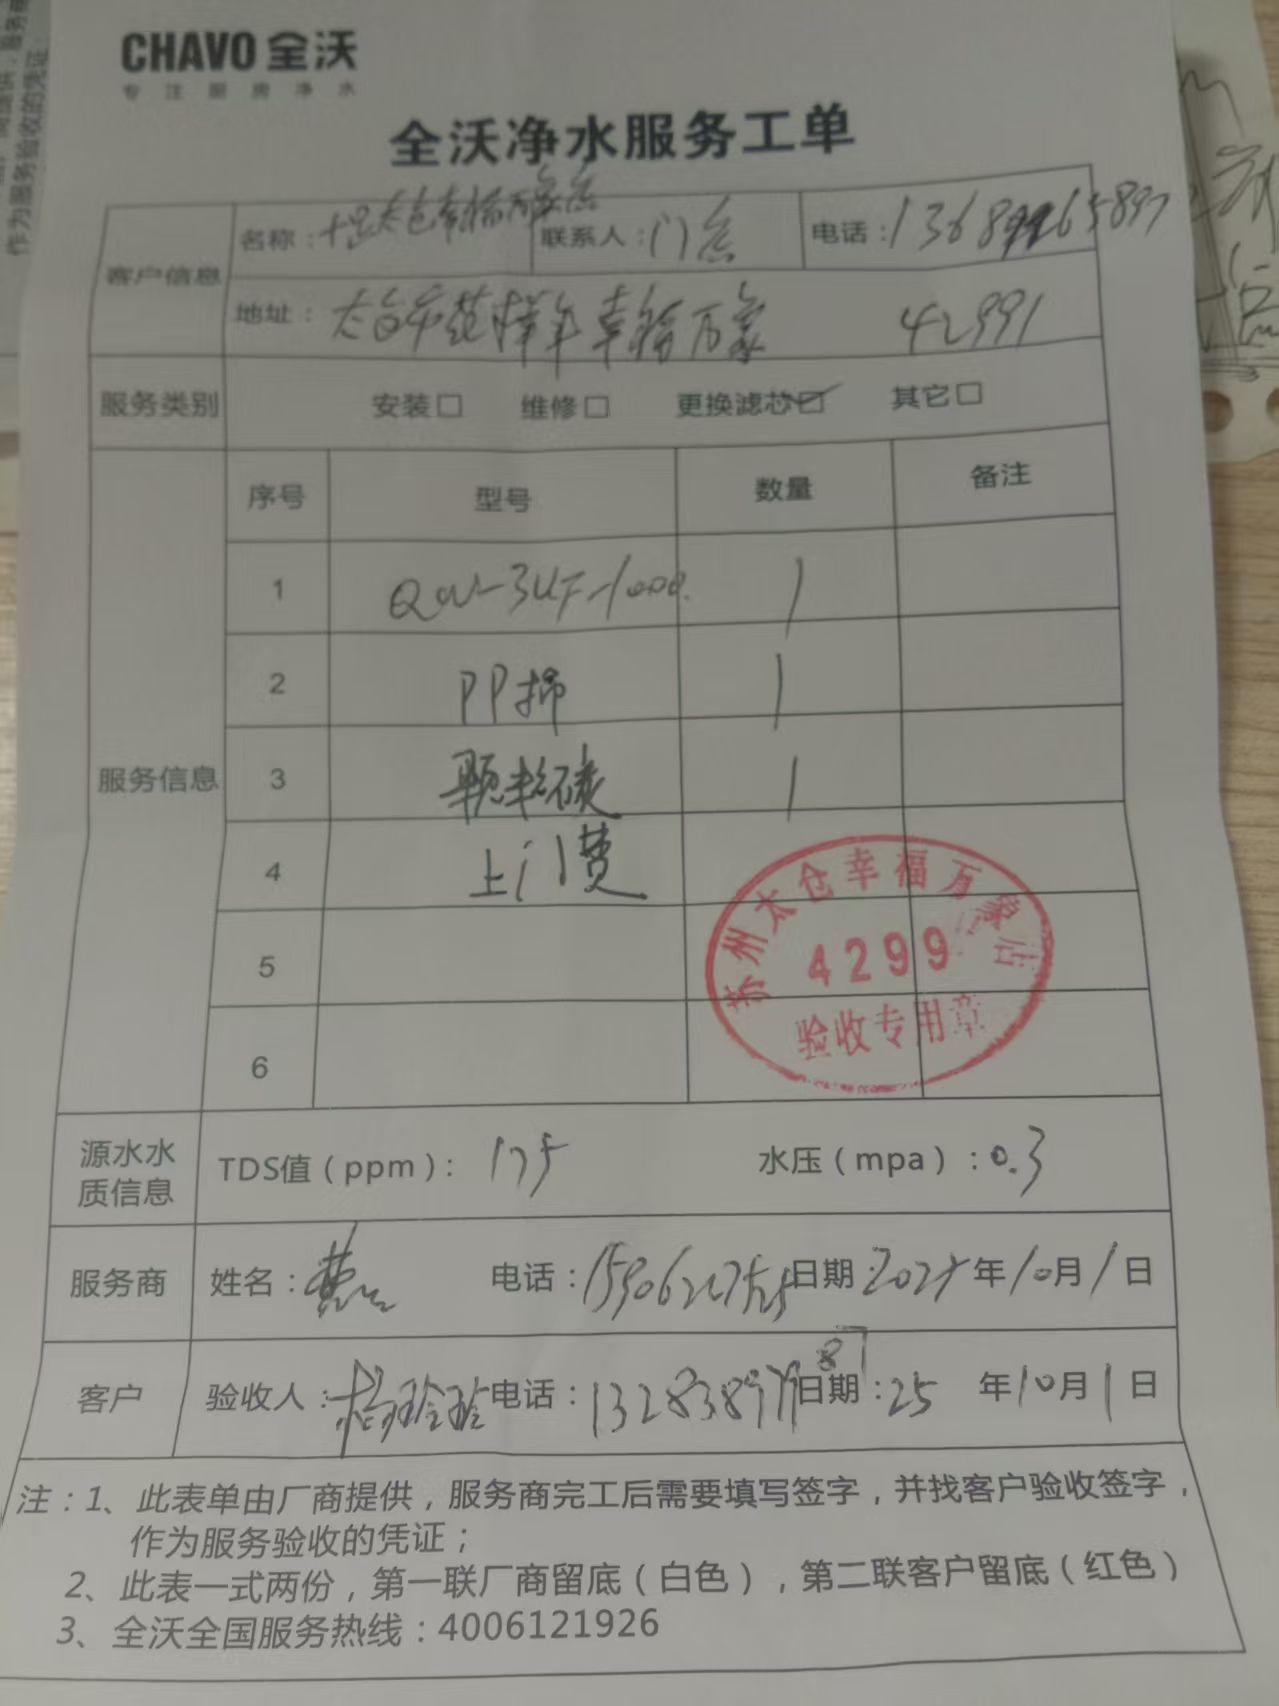 作为服务验收的凭证
CHAVO 全沃
专注厨房净水
全沃净水服务工单
客户信息
名称：太仓幸福万象店 联系人：门店 电话：
地址： 幸福万象 42991
服务类别 安装□ 维修□ 更换滤芯☑ 其它□
服务信息
序号 型号 数量 备注
1 QW-3UF-1000 1
2 PP棉 1
3 颗粒碳 1
4 上门费
5
6
苏州太仓幸福万象店
4299
验收专用章
源水水质信息 TDS值（ppm）：175 水压（mpa）：0.3
服务商 姓名： 电话： 日期：2025年10月1日
客户 验收人：杨玲玲 电话： 日期：25年10月1日
注：1、此表单由厂商提供，服务商完工后需要填写签字，并找客户验收签字，
作为服务验收的凭证；
2、此表一式两份，第一联厂商留底（白色），第二联客户留底（红色）
3、全沃全国服务热线：4006121926